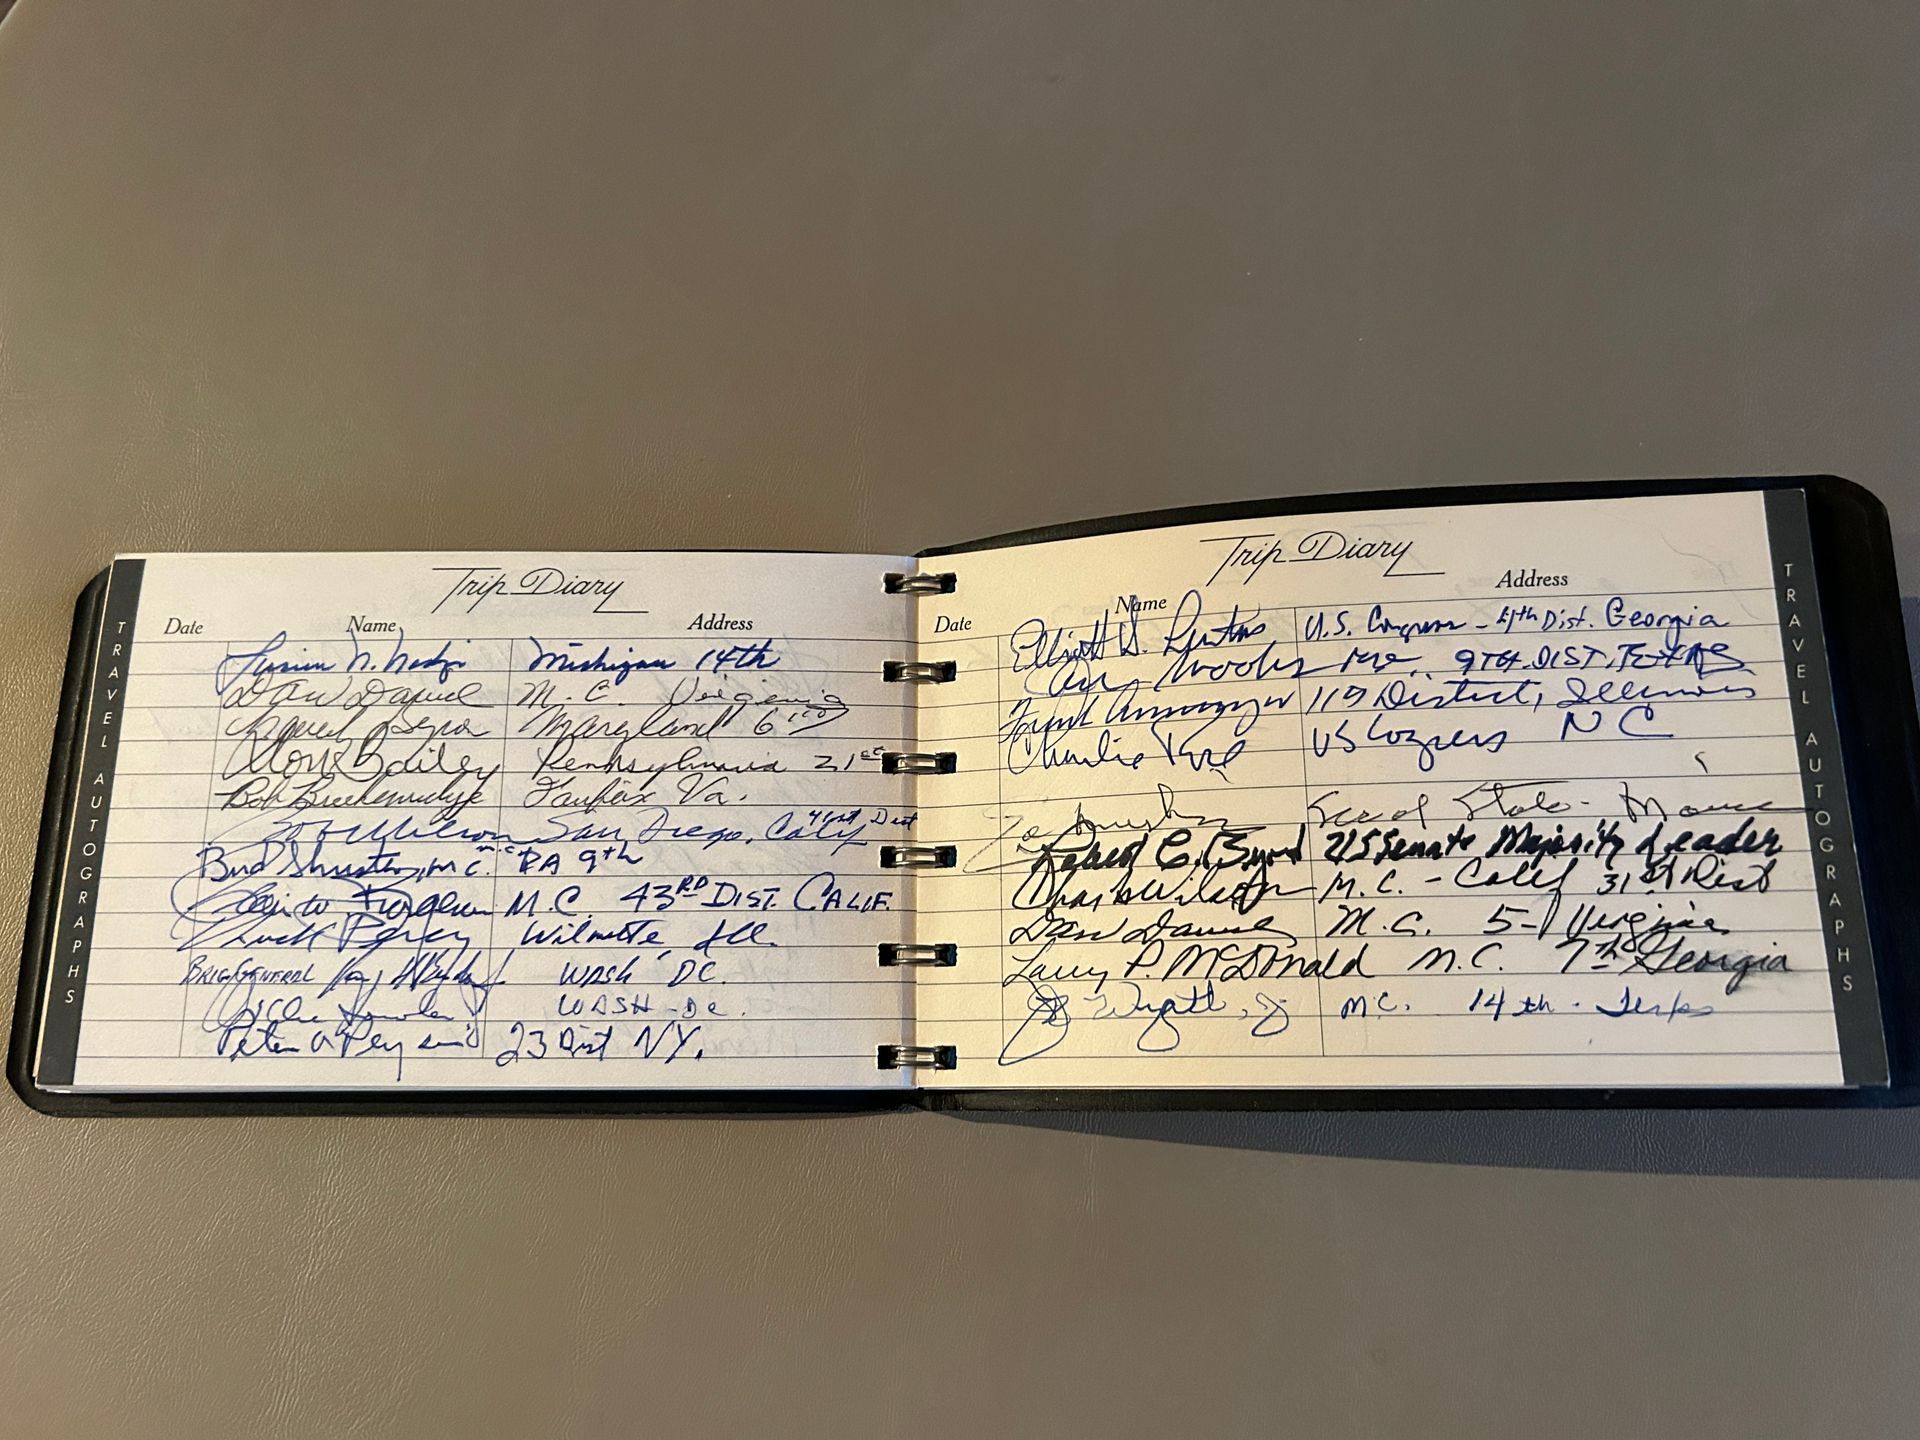 TRAVEL AUTOGRAPHS
Trip Diary
Date Name Address
Lucien N. Nedzi Michigan 14th
Dan Daniel M. C. Virginia
Byron Maryland 6
Bailey Pennsylvania 21st
Bob Breckenridge Fairfax Va.
Bob Wilson San Diego, Calif 41st Dist
Bud Shuster, M.C. PA 9th
M.C. 43RD DIST. CALIF.
Chuck Percy Wilmette, Ill.
BRIG GENERAL WASH DC.
WASH - DC.
Peter A Peyser 23 Dist NY.
Trip Diary
Date Name Address
Elliott H. U.S. Congress - 4th Dist. Georgia
9TH. DIST. TEXAS
Frank Annunzio 11th District, Illinois
Charlie Rose US Congress NC
Robert C. Byrd US Senate Majority Leader
Chas H Wilson M.C. - Calif 31st Dist
Dan Daniel M.C. 5- Virginia
Larry P. McDonald M.C. 7th Georgia
Joe Wyatt, Jr M.C. 14th - Texas
TRAVEL AUTOGRAPHS